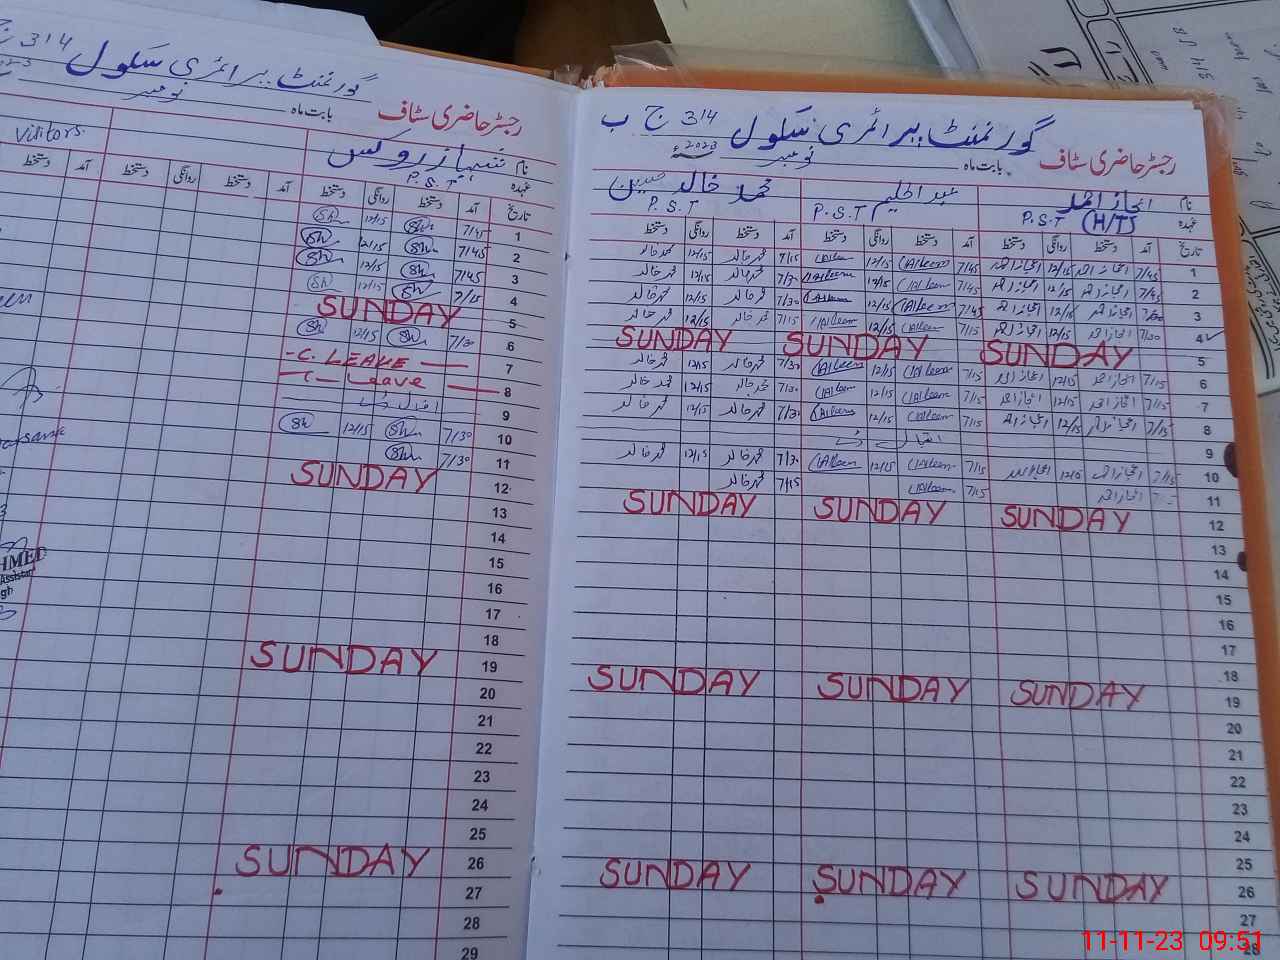 رجسٹر حاضری سٹاف
گورنمنٹ پرائمری سکول 314 ج ب
بابت ماہ نومبر 2023ء
نام اعجاز احمد عبدالحلیم محمد خالد حسین
عہدہ P.S.T (H/T) P.S.T P.S.T
تاریخ آمد دستخط روانگی دستخط آمد دستخط روانگی دستخط آمد دستخط روانگی دستخط
1 7/45 اعجاز احمد 12/15 اعجاز احمد 7/45 Aleem 12/15 Aleem 7/15 محمد خالد 12/15 محمد خالد
2 7/45 اعجاز احمد 12/15 اعجاز احمد 7/45 Aleem 12/15 Aleem 7/30 محمد خالد 12/15 محمد خالد
3 اعجاز احمد 12/15 اعجاز احمد 7/45 Aleem 12/15 Aleem 7/30 محمد خالد 12/15 محمد خالد
4 7/30 اعجاز احمد 12/15 اعجاز احمد 7/15 Aleem 12/15 Aleem 7/15 محمد خالد 12/15 محمد خالد
5 SUNDAY SUNDAY SUNDAY
6 7/15 اعجاز احمد 12/15 اعجاز احمد 7/15 Aleem 12/15 Aleem 7/30 محمد خالد 12/15 محمد خالد
7 7/15 اعجاز احمد 12/15 اعجاز احمد 7/15 Aleem 12/15 Aleem 7/30 محمد خالد 12/15 محمد خالد
8 7/15 اعجاز احمد 12/15 اعجاز احمد 7/15 Aleem 12/15 Aleem 7/30 محمد خالد 12/15 محمد خالد
9 اقبال ڈے
10 7/15 اعجاز احمد 12/15 اعجاز احمد 7/15 Aleem 12/15 Aleem 7/30 محمد خالد 12/15 محمد خالد
11 7/15 اعجاز احمد 7/15 Aleem 7/15 محمد خالد
12 SUNDAY SUNDAY SUNDAY
13
14
15
16
17
18
19 SUNDAY SUNDAY SUNDAY
20
21
22
23
24
25
26 SUNDAY SUNDAY SUNDAY
27
28
رجسٹر حاضری سٹاف
گورنمنٹ پرائمری سکول 314 ج
بابت ماہ نومبر
نام شہباز Visitors
عہدہ P.S.T
تاریخ آمد دستخط روانگی دستخط آمد دستخط روانگی دستخط آمد دستخط
1 7/45 Sh 12/15 Sh
2 7/45 Sh 12/15 Sh
3 7/45 Sh 12/15 Sh
4 7/15 Sh 12/15 Sh
5 SUNDAY
6 7/30 Sh 12/15 Sh
7 -C. LEAVE
8 C-Leave
9 اقبال ڈے
10 7/30 Sh 12/15 Sh
11 7/30 Sh
12 SUNDAY
13
14
15
16
17
18
19 SUNDAY
20
21
22
23
24
25
26 SUNDAY
27
28
29
HMED
Assistan
gh
11-11-23 09:51